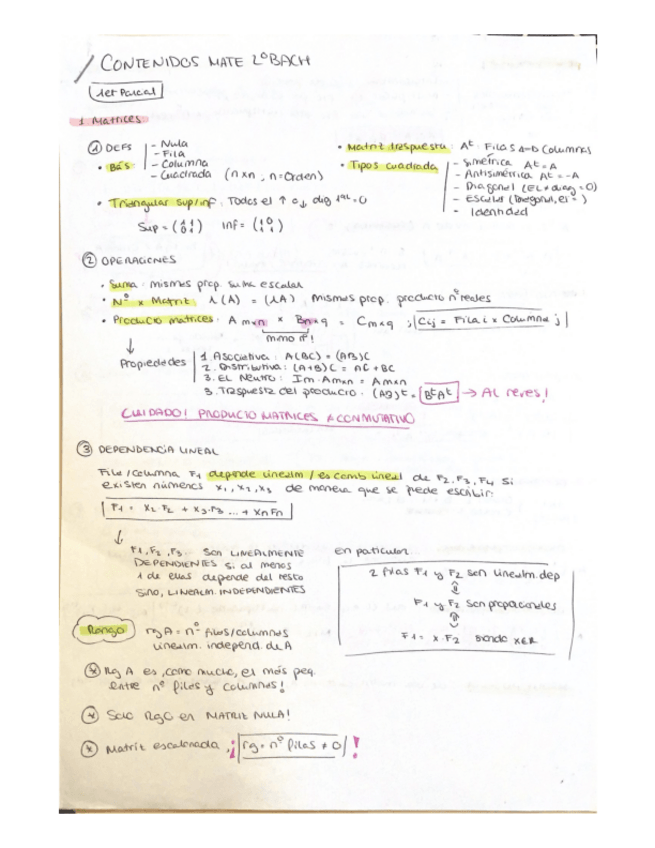 CONTENIDOS MATE 2º BACH
1er Parcial
1 Matrices
① DEFS
• Bás
- Nula
- Fila
- Columna
- Cuadrada (n x n ; n=Orden)
• Matriz traspuesta: Aᵗ: Filas ↔ Columnas
• Tipos cuadrada
- Simétrica Aᵗ=A
- Antisimétrica Aᵗ=-A
- Diagonal (EL ≠ diag = 0)
- Escalar (Diagonal, el = )
- Identidad
• Triangular sup/inf: Todos el ↑ o ↓ diag =0
Sup = (1 1 / 0 1) Inf = (1 0 / 1 1)
② OPERACIONES
• Suma: mismas prop. suma escalar
• Nº x Matriz λ(A) = (λA) mismas prop. producto nº reales
• Producto matrices: A mxn x B nxq = C mxq ; Cij = Fila i x Columna j
mmo nº!
↓
Propiedades
1. Asociativa: A(BC) = (AB)C
2. Distributiva: (A+B)C = AC + BC
3. EL Neutro: Im · Amxn = Amxn
3. Traspuesta del producto: (AB)ᵗ = BᵗAᵗ → AL revés!
CUIDADO! PRODUCTO MATRICES ≠ CONMUTATIVO
③ DEPENDENCIA LINEAL
Fila/columna F1 depende linealm/es comb lineal de F2, F3, F4 si
existen números x1, x2, x3 de manera que se puede escribir:
F1 = x2·F2 + x3·F3 ... + xnFn
↓
F1, F2, F3... Son LINEALMENTE
DEPENDIENTES si al menos
1 de ellas depende del resto
SINO, LINEALM. INDEPENDIENTES
en paticular
2 filas F1 y F2 sen linealm. dep
⇕
F1 y F2 sen proporcionales
⇕
F1 = x·F2 siendo x∈R
Rango
rg A = nº filas/columnas
linealm. independ. de A
* Rg A es, como mucho, el más peq.
entre nº filas y columnas!
* Solo Rg0 en MATRIZ NULA!
* Matriz escalonada ¡rg = nº filas ≠ 0!